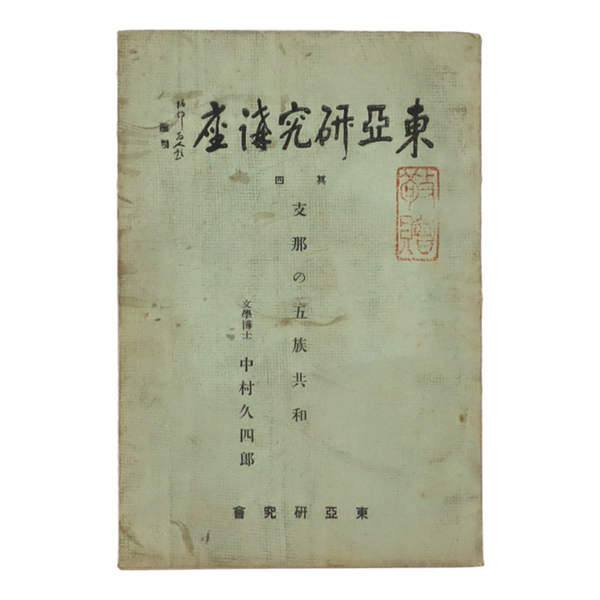 東亞研究講座
其四
支那の五族共和
文學博士 中村久四郎
東亞研究會